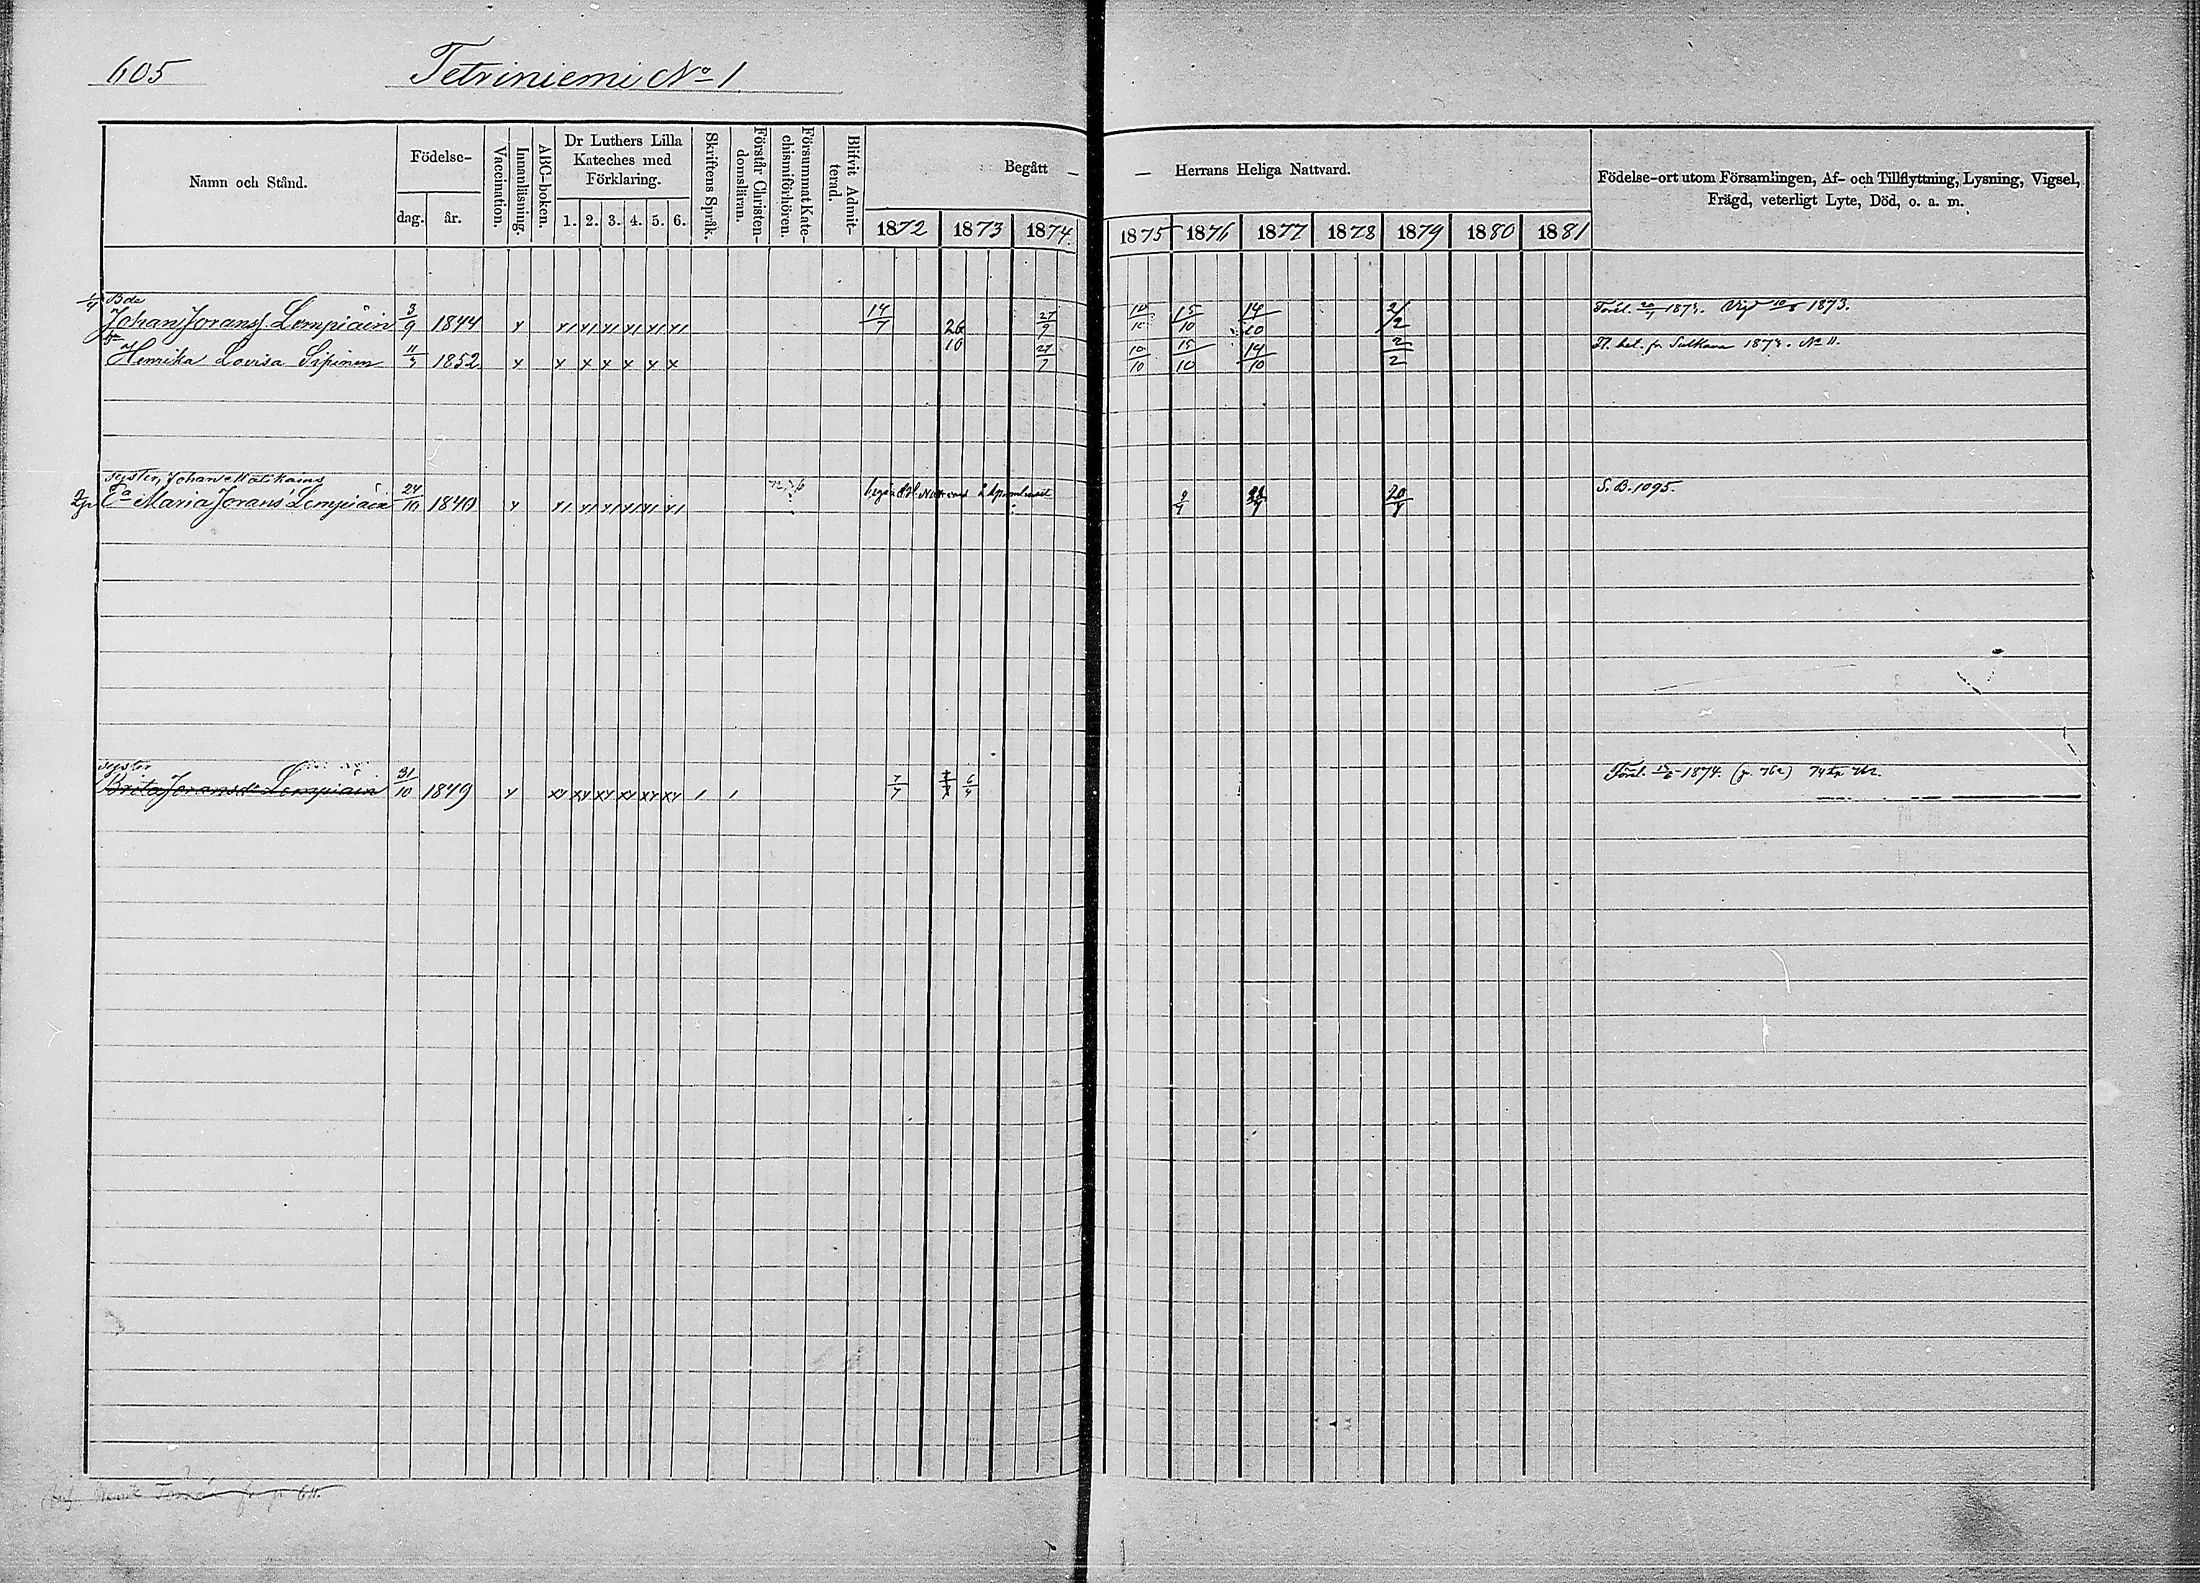 605 Tetriniemi No 1.
Namn och Stånd.
Födelse-
dag. år.
Vaccination.
Innanläsning.
ABC-boken.
Dr Luthers Lilla
Kateches med
Förklaring.
1. 2. 3. 4. 5. 6.
Skriftens Språk.
Förstår Christen-
domsläran.
Försummat Kate-
chismiförhören.
Blifvit Admit-
terad.
Begått — — Herrans Heliga Nattvard.
1872 1873 1874. 1875 1876 1877 1878 1879 1880 1881
Födelse-ort utom Församlingen, Af- och Tillflyttning, Lysning, Vigsel,
Frägd, veterligt Lyte, Död, o. a. m.
Bde
Johan Joranss. Lempiäin 3/9 1844 x x1 x1 x1 x1 x1 x1 14/7 26/10 27/9 10/10 15/10 14/10 2/2 1873. Vigd 1873.
Henrika Lovisa Sipinen 1852. x x x x x x x 10/10 15/10 14/10 2/2 fr Sulkava No 11.
syster, Johan
Maria Jorans Lempiäin 24/10 1840 x x1 x1 x1 x1 x1 x1 S. B. 1095.
syster
Brita Joransdr Lempiäin 31/10 1849 x xx xx xx xx xx xx 1 1 7/7 6/4 1874. (p. 762)